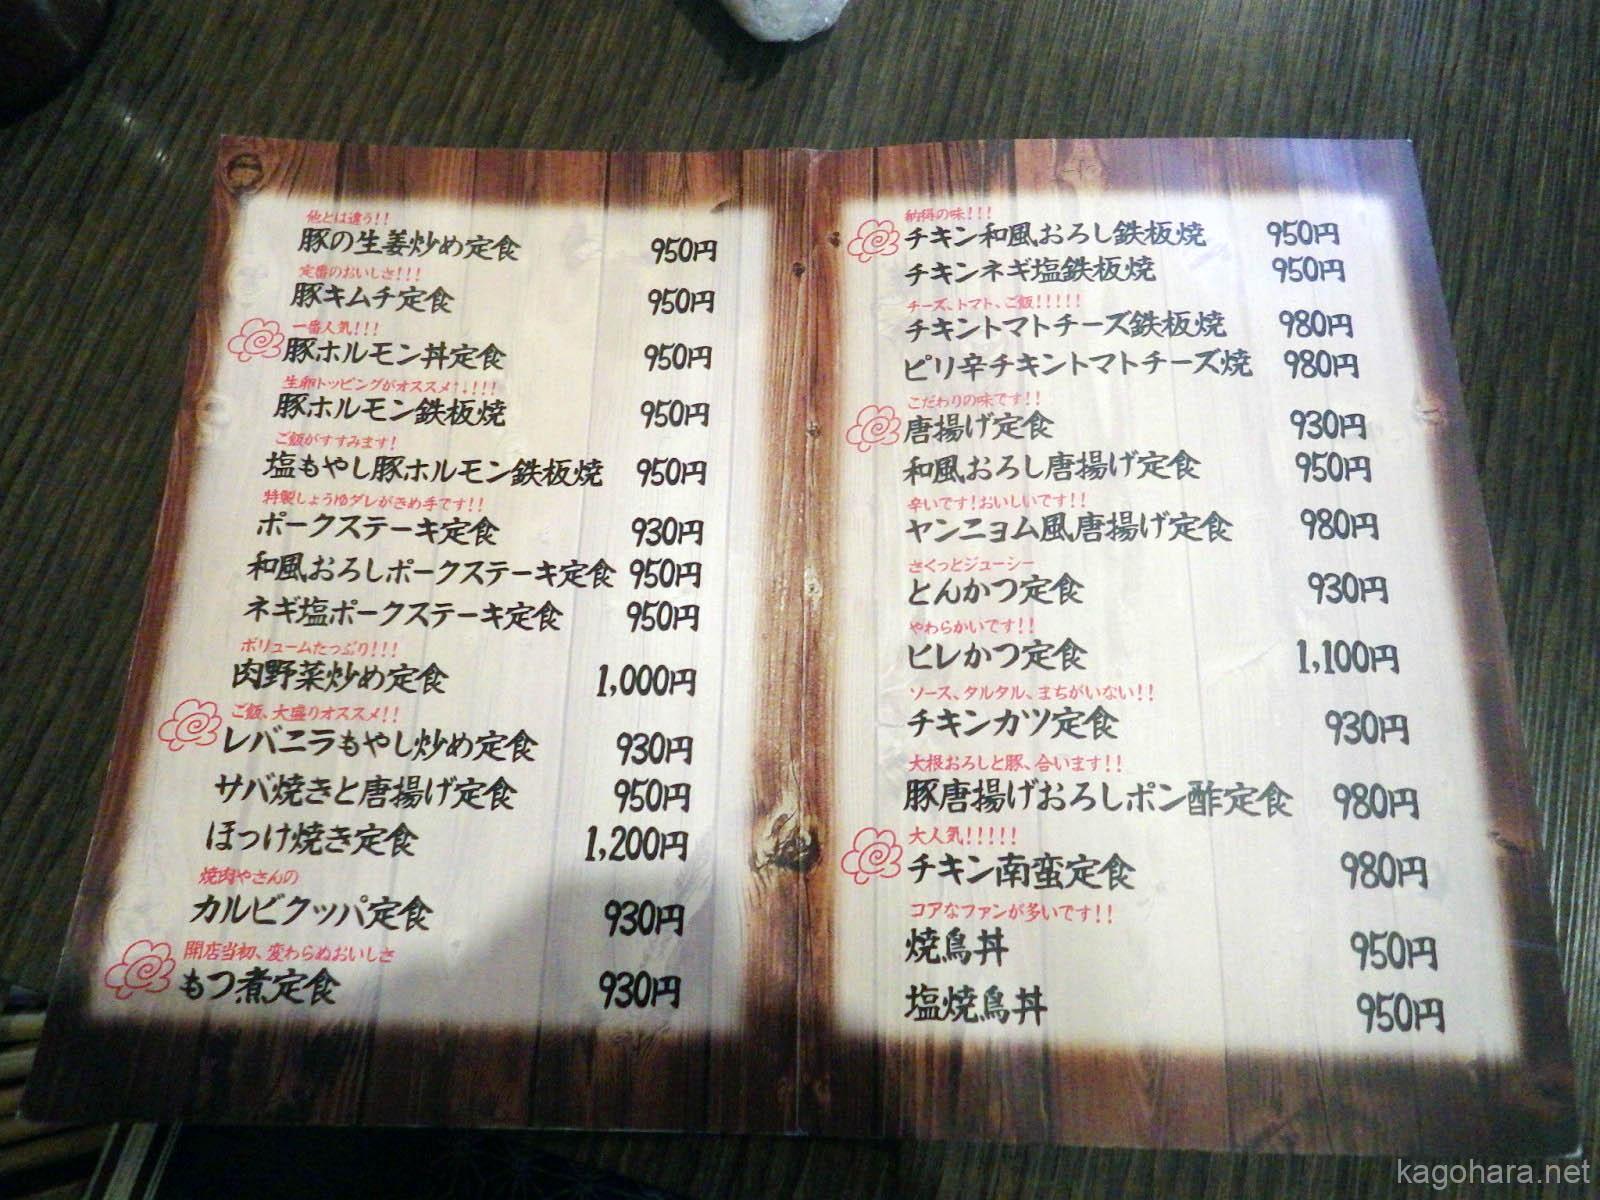 他とは違う!!
豚の生姜炒め定食 950円
定番のおいしさ!!!
豚キムチ定食 950円
一番人気!!!
豚ホルモン丼定食 950円
生卵トッピングがオススメ↑↓!!!
豚ホルモン鉄板焼 950円
ご飯がすすみます!
塩もやし豚ホルモン鉄板焼 950円
特製しょうゆダレがきめ手です!!
ポークステーキ定食 930円
和風おろしポークステーキ定食 950円
ネギ塩ポークステーキ定食 950円
ボリュームたっぷり!!!
肉野菜炒め定食 1,000円
ご飯、大盛りオススメ!!
レバニラもやし炒め定食 930円
サバ焼きと唐揚げ定食 950円
ほっけ焼き定食 1,200円
焼肉やさんの
カルビクッパ定食 930円
開店当初、変わらぬおいしさ
もつ煮定食 930円
納得の味!!!
チキン和風おろし鉄板焼 950円
チキンネギ塩鉄板焼 950円
チーズ、トマト、ご飯!!!!!
チキントマトチーズ鉄板焼 980円
ピリ辛チキントマトチーズ焼 980円
こだわりの味です!!
唐揚げ定食 930円
和風おろし唐揚げ定食 950円
辛いです!おいしいです!!
ヤンニョム風唐揚げ定食 980円
さくっとジューシー
とんかつ定食 930円
やわらかいです!!
ヒレかつ定食 1,100円
ソース、タルタル、まちがいない!!
チキンカツ定食 930円
大根おろしと豚、合います!!
豚唐揚げおろしポン酢定食 980円
大人気!!!!!
チキン南蛮定食 980円
コアなファンが多いです!!
焼鳥丼 950円
塩焼鳥丼 950円
kagohara.net